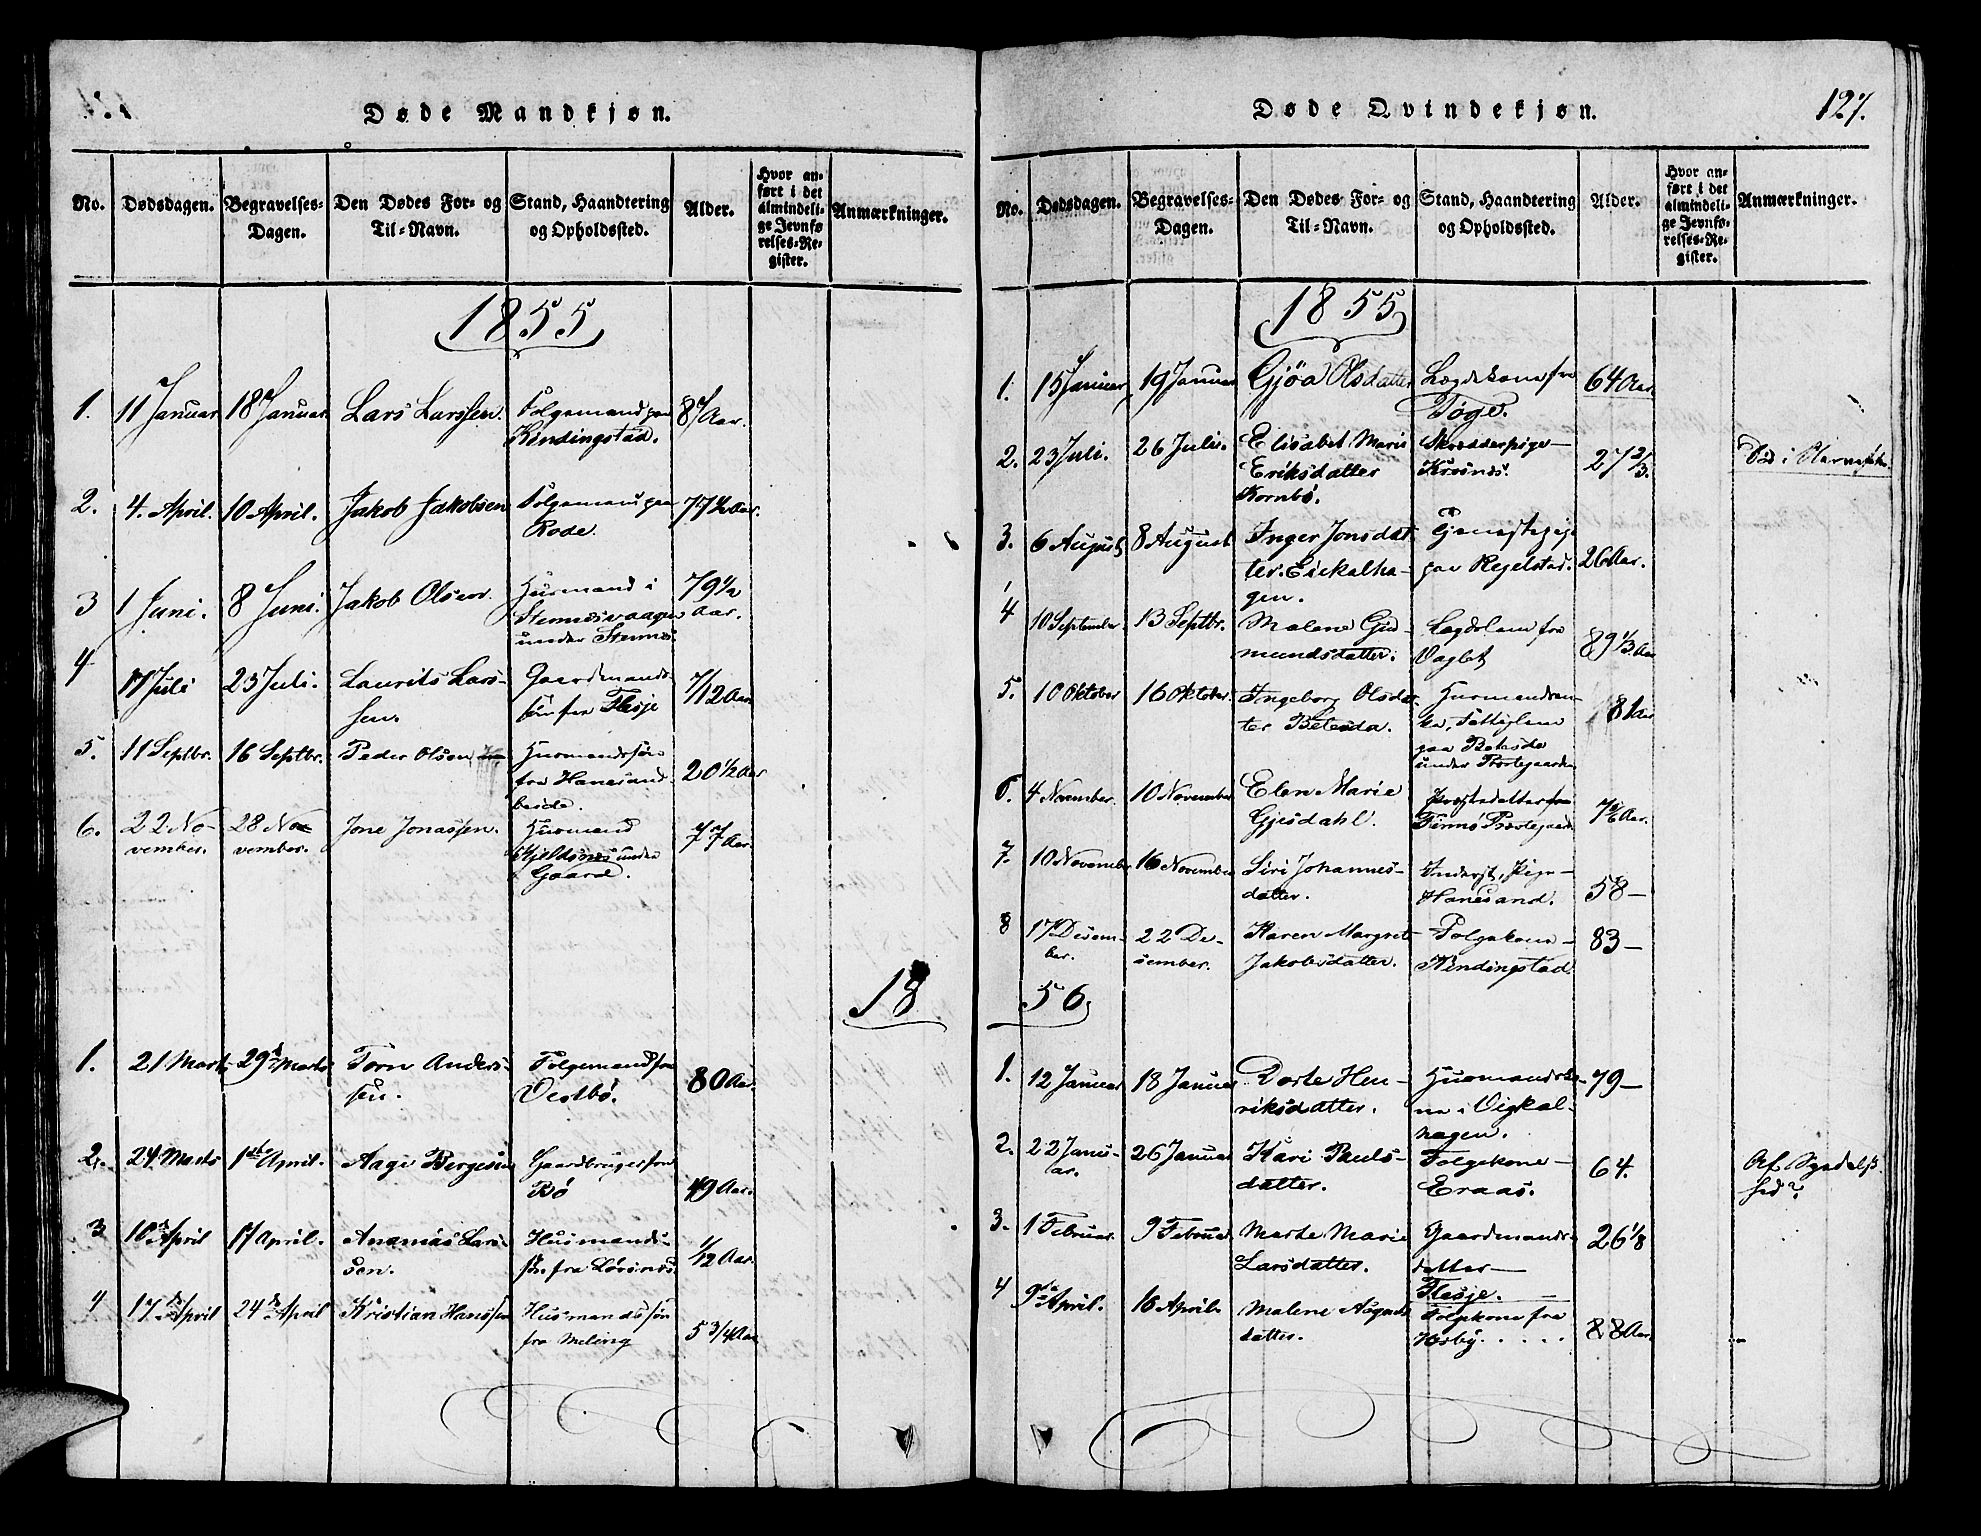 Døde Mandkjøn.
No. Dødsdagen. Begravelses-Dagen. Den Dødes For- og Til-Navn. Stand, Haandtering og Opholdssted. Alder. Hvor anført i det almindelige Jevnførelses-Register. Anmærkninger.
1855
1. 11 Januar 18 Januar Lars Larssen. Folgemand paa
Kindingstad. 87 Aar.
2. 4. April. 10 April. Jakob Jakobsen Folgemand paa
Rode. 77½ Aar.
3 1 Juni. 8 Juni. Jakob Olsen Husmand i
Stennesvaagen
under Stennes 79½
Aar.
4 17 Juli 23 Juli. Laurits Lars-
sen. Gaardmands-
søn fra Flesje 7/12 Aar
5. 11 Septbr. 16 Septbr. Peder Olsen Husmandssøn
fra Hanesand 20 1/2 Aar
6. 22 No-
vember. 28 No-
vember. Jone Jonassen. Husmand
Kjeldsnes under
Gaard. 77 Aar.
18
1. 21 Marts 29de Marts Torn Anders-
sen. Folgemand fra
Vestbø. 80 Aar.
2. 24 Marts 1ste April. Aage Bergesen Gaardbruger fra
Bø 49 Aar.
3 10de April 17 April. Ananias Lars-
sen. Husmands-
søn fra 1/12 Aar.
4 17de April 24de April Kristian Hanssen Husmandssøn
fra Meling 5 3/4 Aar
Døde Qvindekjøn.
127.
No. Dødsdagen. Begravelses-Dagen. Den Dødes For- og Til-Navn. Stand, Haandtering og Opholdssted. Alder. Hvor anført i det almindelige Jevnførelses-Register. Anmærkninger.
1855
1. 15 Januar 19 Januar Gjøa Olsdatter Lægdekone fra
Tøge. 64 Aar.
2. 23 Juli. 26 Juli. Elisabet Marie
Eriksdatter
Kornbø. 27 2/3. Død i
3. 6 August 8 August Inger Jonsdat-
ter Eickelha-
gen. Tjenestepige
paa Regelstad. 26 Aar.
4 10 September 13 Septbr. Malene Gud-
mundsdatter. Lægdslem fra
Vaglet 89 1/3 Aar
5. 10 Oktober 16 Oktober. Ingeborg Olsdat-
ter Betesda. Husmandsen-
ke, Fattiglem
paa Betesda
under Præstegaarden 81 Aar
6. 4 November. 10 November Elen Marie
Gjesdahl. Præstedatter fra
Præstegaard 7 Aar.
7. 10 November 16 November Siri Johannes-
datter. Inderst, Pige-
Hanesand. 58-
8 17 Desem-
ber. 22 De-
sember. Karen Margrete
Jakobsdatter. Folgekone-
Kindingstad. 83-
56
1. 12 Januar 18 Januar Dorte Hen-
riksdatter. Husmandsko-
ne i Vigkal-
hagen. 79-
2. 22 Janu-
ar. 26 Januar Kari Pauls-
datter. Folgekone-
Eraas. 64. Af
3. 1 Februar. 9 Februar Marte Marie
Larsdatter. Gaardmands-
datter-
Flesje. 26 1/8
4 9de April. 16 April. Malene
datter. Folgekone fra
Hesby..... 88 Aar.